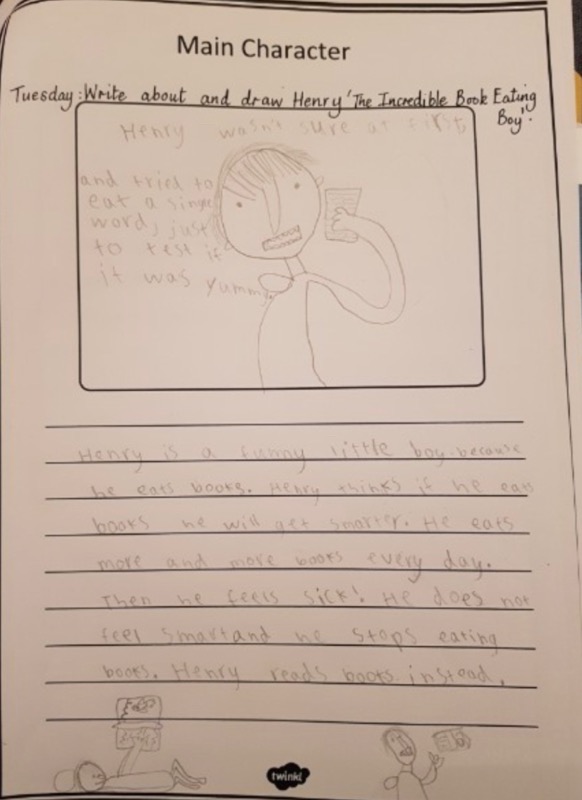 Main Character
Tuesday: Write about and draw Henry 'The Incredible Book Eating
Boy'.
Henry wasn't sure at first,
and tried to
eat a single
word, just
to test if
it was yummy.
Henry is a funny little boy because
he eats books. Henry thinks if he eats
books he will get smarter. He eats
more and more books every day.
Then he feels sick! He does not
feel smart and he stops eating
books. Henry reads books instead.
twinkl